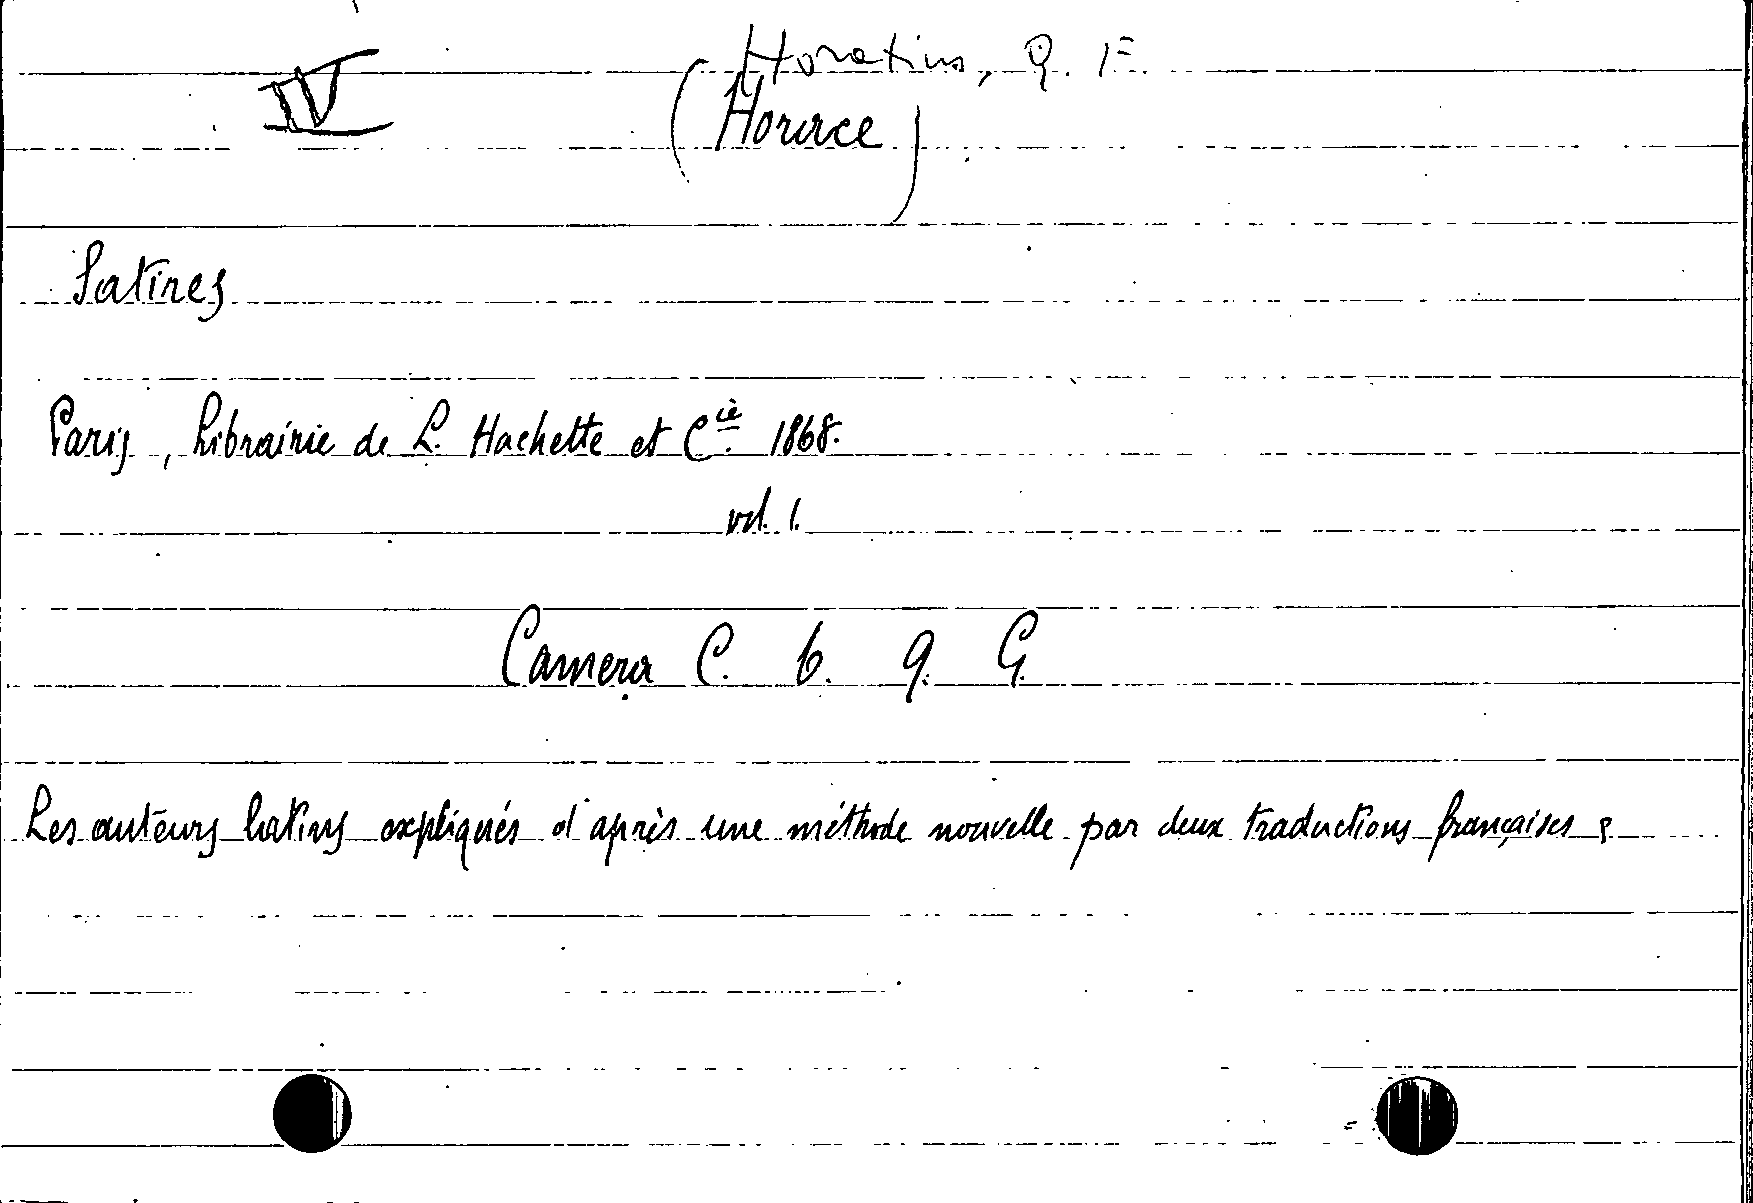 Horatius, Q. F.
IV (Horace)
Satires
Paris, Librairie de L. Hachette et Cie. 1868.
vol. 1.
Camera C. 6. 9. G.
Les auteurs latins expliqués d'après une méthode nouvelle par deux traductions françaises